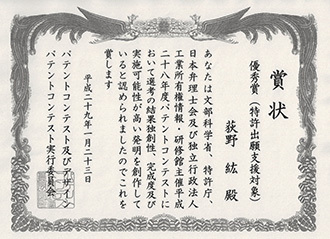 賞状
優秀賞(特許出願支援対象)
荻野 紘 殿
あなたは文部科学省、特許庁、
日本弁理士会及び独立行政法人
工業所有権情報・研修館主催平成
二十八年度パテントコンテストに
おいて選考の結果独創性、完成度及び
実施可能性が高い発明を創作して
いると認められましたのでこれを
賞します
平成二十九年一月二十三日
パテントコンテスト及びデザイン
パテントコンテスト実行委員会